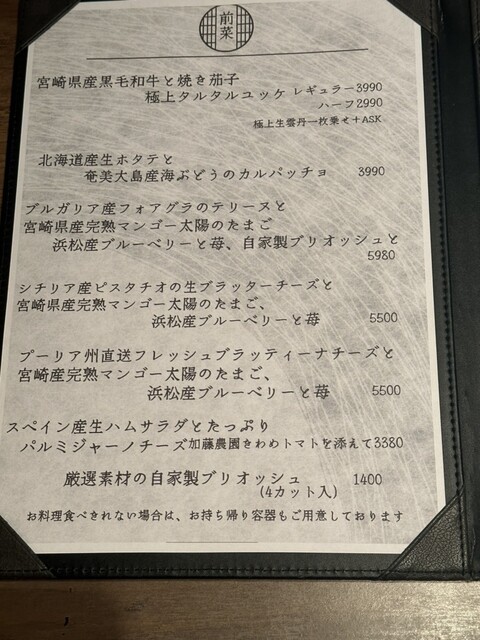 前菜
宮崎県産黒毛和牛と焼き茄子
極上タルタルユッケ レギュラー3990
ハーフ2990
極上生雲丹一枚乗せ+ASK
北海道産生ホタテと
奄美大島産海ぶどうのカルパッチョ 3990
ブルガリア産フォアグラのテリーヌと
宮崎県産完熟マンゴー太陽のたまご
浜松産ブルーベリーと苺、自家製ブリオッシュと
5980
シチリア産ピスタチオの生ブラッターチーズと
宮崎県産完熟マンゴー太陽のたまご、
浜松産ブルーベリーと苺 5500
プーリア州直送フレッシュブラッティーナチーズと
宮崎産完熟マンゴー太陽のたまご、
浜松産ブルーベリーと苺 5500
スペイン産生ハムサラダとたっぷり
パルミジャーノチーズ加藤農園きわめトマトを添えて3380
厳選素材の自家製ブリオッシュ 1400
(4カット入)
お料理食べきれない場合は、お持ち帰り容器もご用意しております